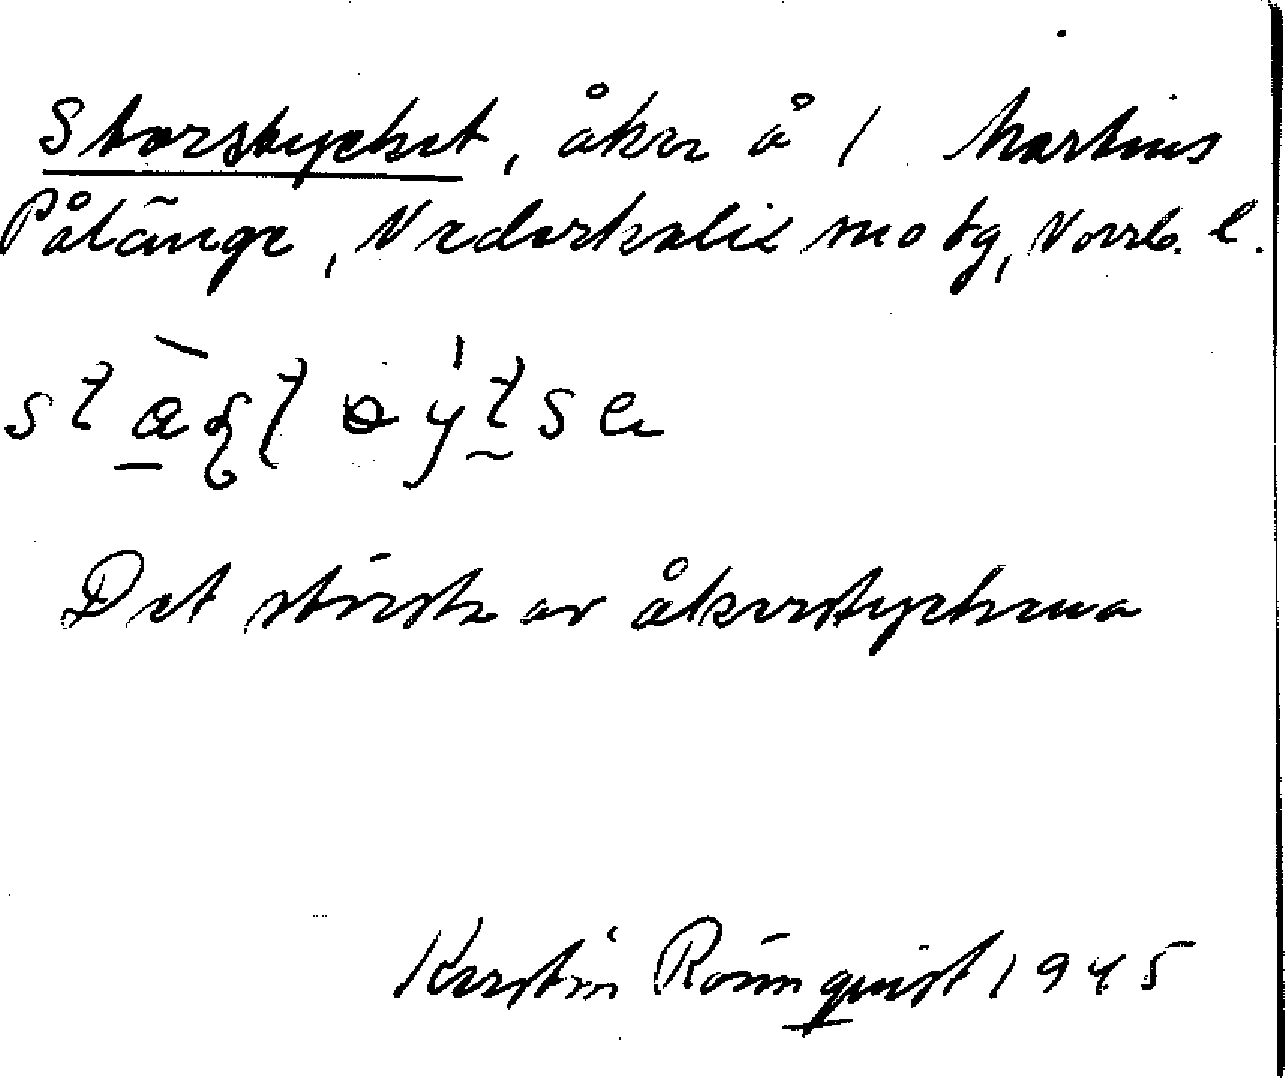 Storstycket, åker å 1 Martins
Pålänge, Nederkalix sn o tg, Norrb. l.
Det största av åkerstyckena
Kerstin Rönnquist 1945